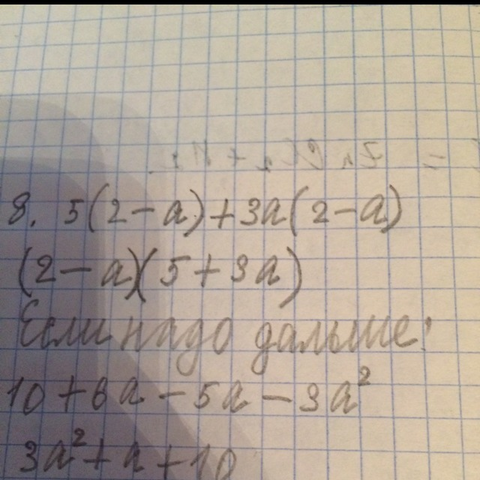 8. 5(2-a)+3a(2-a)
(2-a)(5+3a)
Если надо дальше:
10+6a-5a-3a²
3a²+a+10